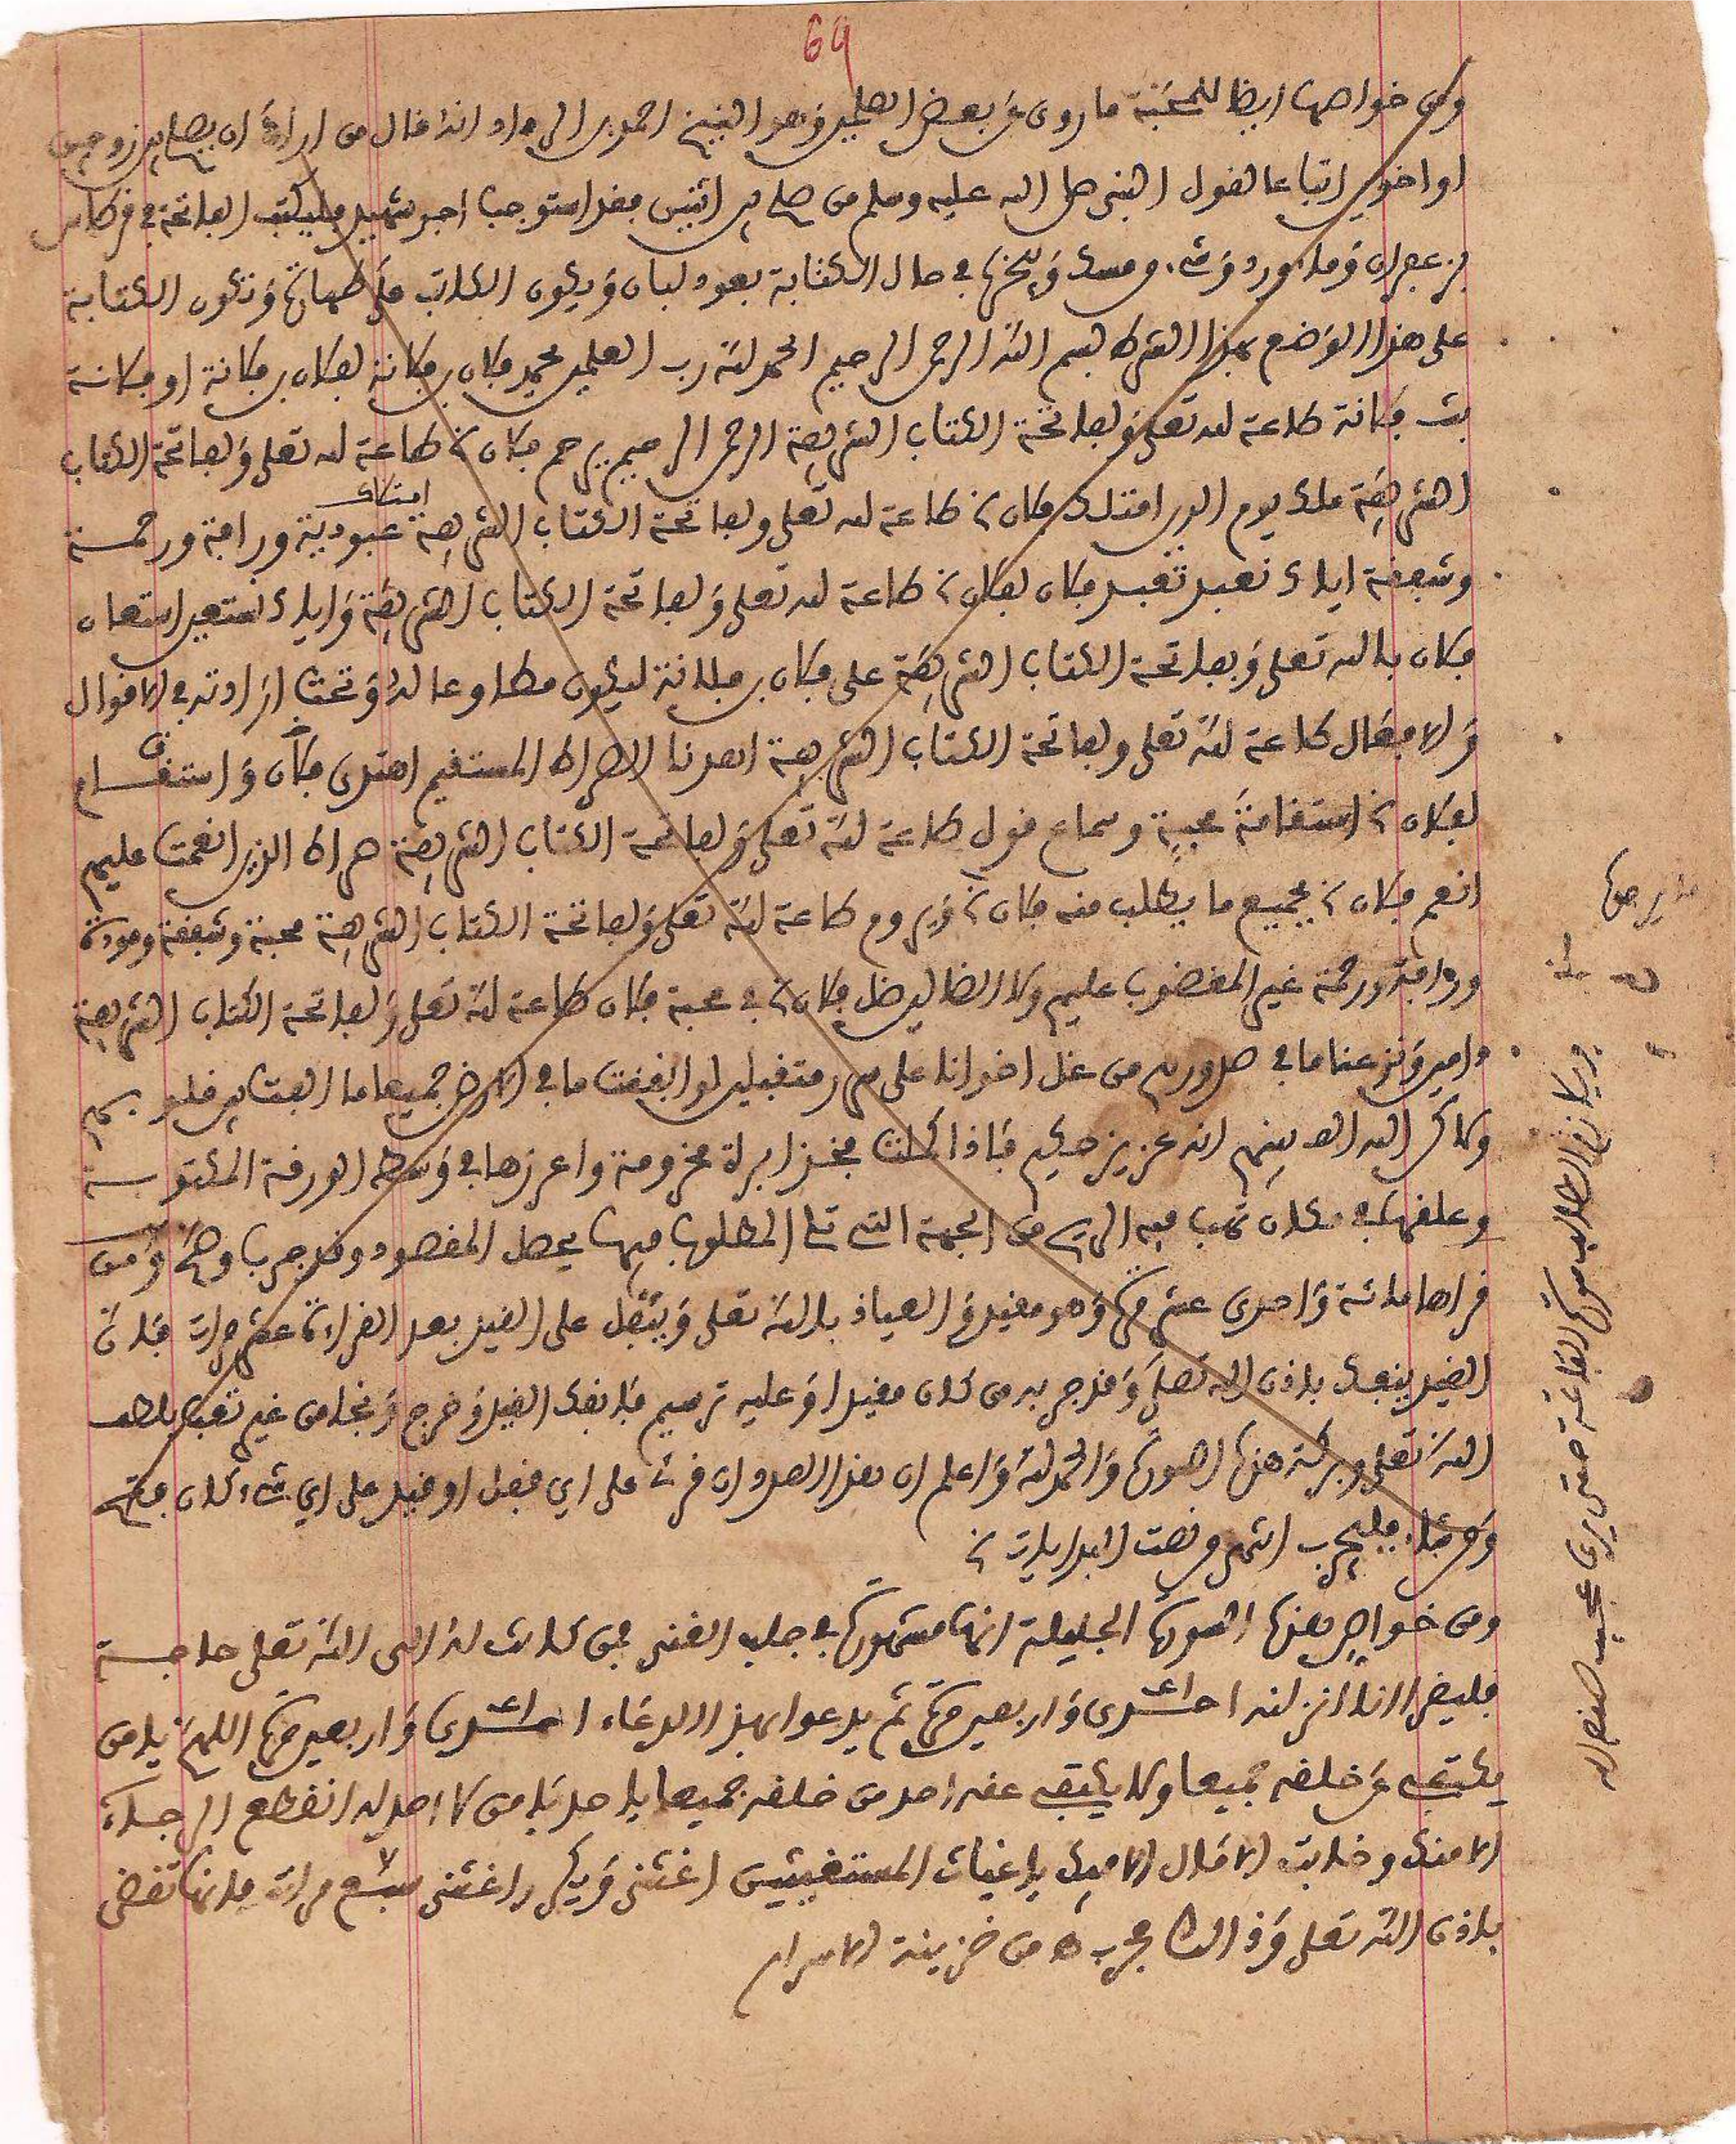 69
ومن خواصها ايضا للمحبة ما روى عن بعض العلمين وهو الشيخ احمد انه قال من اراد ان يصلح بين زوجين
او اخوين اتباعا لقول النبي صلى الله عليه وسلم من صلح بين اثنين فقد استوجب اجر شهيد فليكتب الفاتحة في قرطاس
بزعفران وماء ورد وشيء ومسك ويبخرها في حال الكتابة بعود لبان ويكون الكاتب على طهارة وتكون الكتابة
على هذا الوضع بهذا الشرط بسم الله الرحمن الرحيم الحمد لله رب العلمين محمد فلان بن فلانة لفلان بن فلانة او فلانة
بنت فلانة طاعة لله تعلى ولفاتحة الكتاب الشريفة الرحمن الرحيم يرحم فلان طاعة لله تعلى ولفاتحة الكتاب
الشريفة ملك يوم الدين امتلك فلان طاعة لله تعلى ولفاتحة الكتاب الشريفة امتلاك عبودية ورافة ورحمة
وشفقة اياك نعبد تعبد فلان لفلان طاعة لله تعلى ولفاتحة الكتاب الشريفة واياك نستعين استعان
فلان بالله تعلى وبفاتحة الكتاب الشريفة على فلان بن فلانة ليكون مطاوعا له وتحت ارادته في الاقوال
والافعال طاعة لله تعلى ولفاتحة الكتاب الشريفة اهدنا الصراط المستقيم اهتدى فلان واستقام
لفلان استقامة محبة وسماع قول طاعة لله تعلى ولفاتحة الكتاب الشريفة صراط الذين انعمت عليهم
انعم فلان بجميع ما يطلب منه فلان ويروم طاعة لله تعلى ولفاتحة الكتاب الشريفة محبة وشفقة ومودة
ورافة ورحمة غير المغضوب عليهم ولا الضالين ضل فلان في محبة فلان طاعة لله تعلى ولفاتحة الكتاب الشريفة
وامين ونزعنا ما في صدورهم من غل اخوانا على سرر متقبلين لو انفقت ما في الارض جميعا ما الفت بين قلوبهم
ولكن الله الف بينهم انه عزيز حكيم فاذا كملت فخذ ابرة مخزومة واغرزها في وسط الورقة المكتوبة
وعلقها في مكان تهب فيه الريح من الجهة التي تلي المطلوب فيها يحصل المقصود وقد جرب وصح ومن
قراها مائة واحدى عشر مرة وهو مقيد والعياذ بالله تعلى ويتفل على القيد بعد القراءة عشر مرات فان
القيد ينفك باذن الله تعلى وقد جربه من كان مقيدا وعليه ترسيم فانفك القيد وخرج ونجا من غير تعب بلطف
الله تعلى وبركة هذه السورة والحمد لله واعلم ان هذا العدد ان قرئ على اي قفل او قيد على اي شيء كان فتح
وفك فليجرب انتهى من نعت البدايات
ومن خواص هذه السورة الجليلة انها مشهورة في جلب الغنى فمن كانت له الى الله تعلى حاجة
فليقرا انا انزلنه احدى واربعين مرة ثم يدعوا بهذا الدعاء احدى واربعين مرة اللهم يا من
يكتفى عن خلقه جميعا ولا يكتفى عنه احد من خلقه جميعا يا احد يا من لا احد له انقطع الرجاء
الا منك وخابت الامال الا فيك يا غياث المستغيثين اغثنى وبكر اغثنى سبع مرات فانها تقضى
باذن الله تعلى وذالك مجرب ه من خزينة الاسرار